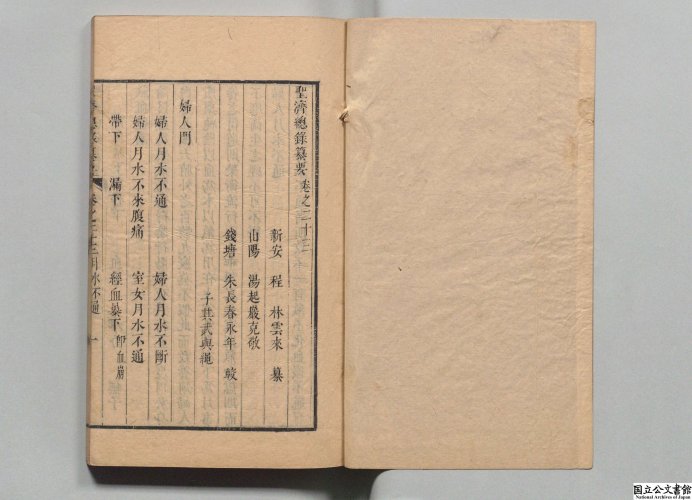 聖濟總錄纂要卷之二十三
新安 程 林雲來 纂
山陽 湯起嚴克敬
錢塘 朱長春永年 較
子其武與繩
婦人門
婦人月水不通 婦人月水不斷
婦人月水不來腹痛 室女月水不通
帶下 漏下 經血暴下 即血崩
卷之二十三 月水不通 一
国立公文書館
National Archives of Japan